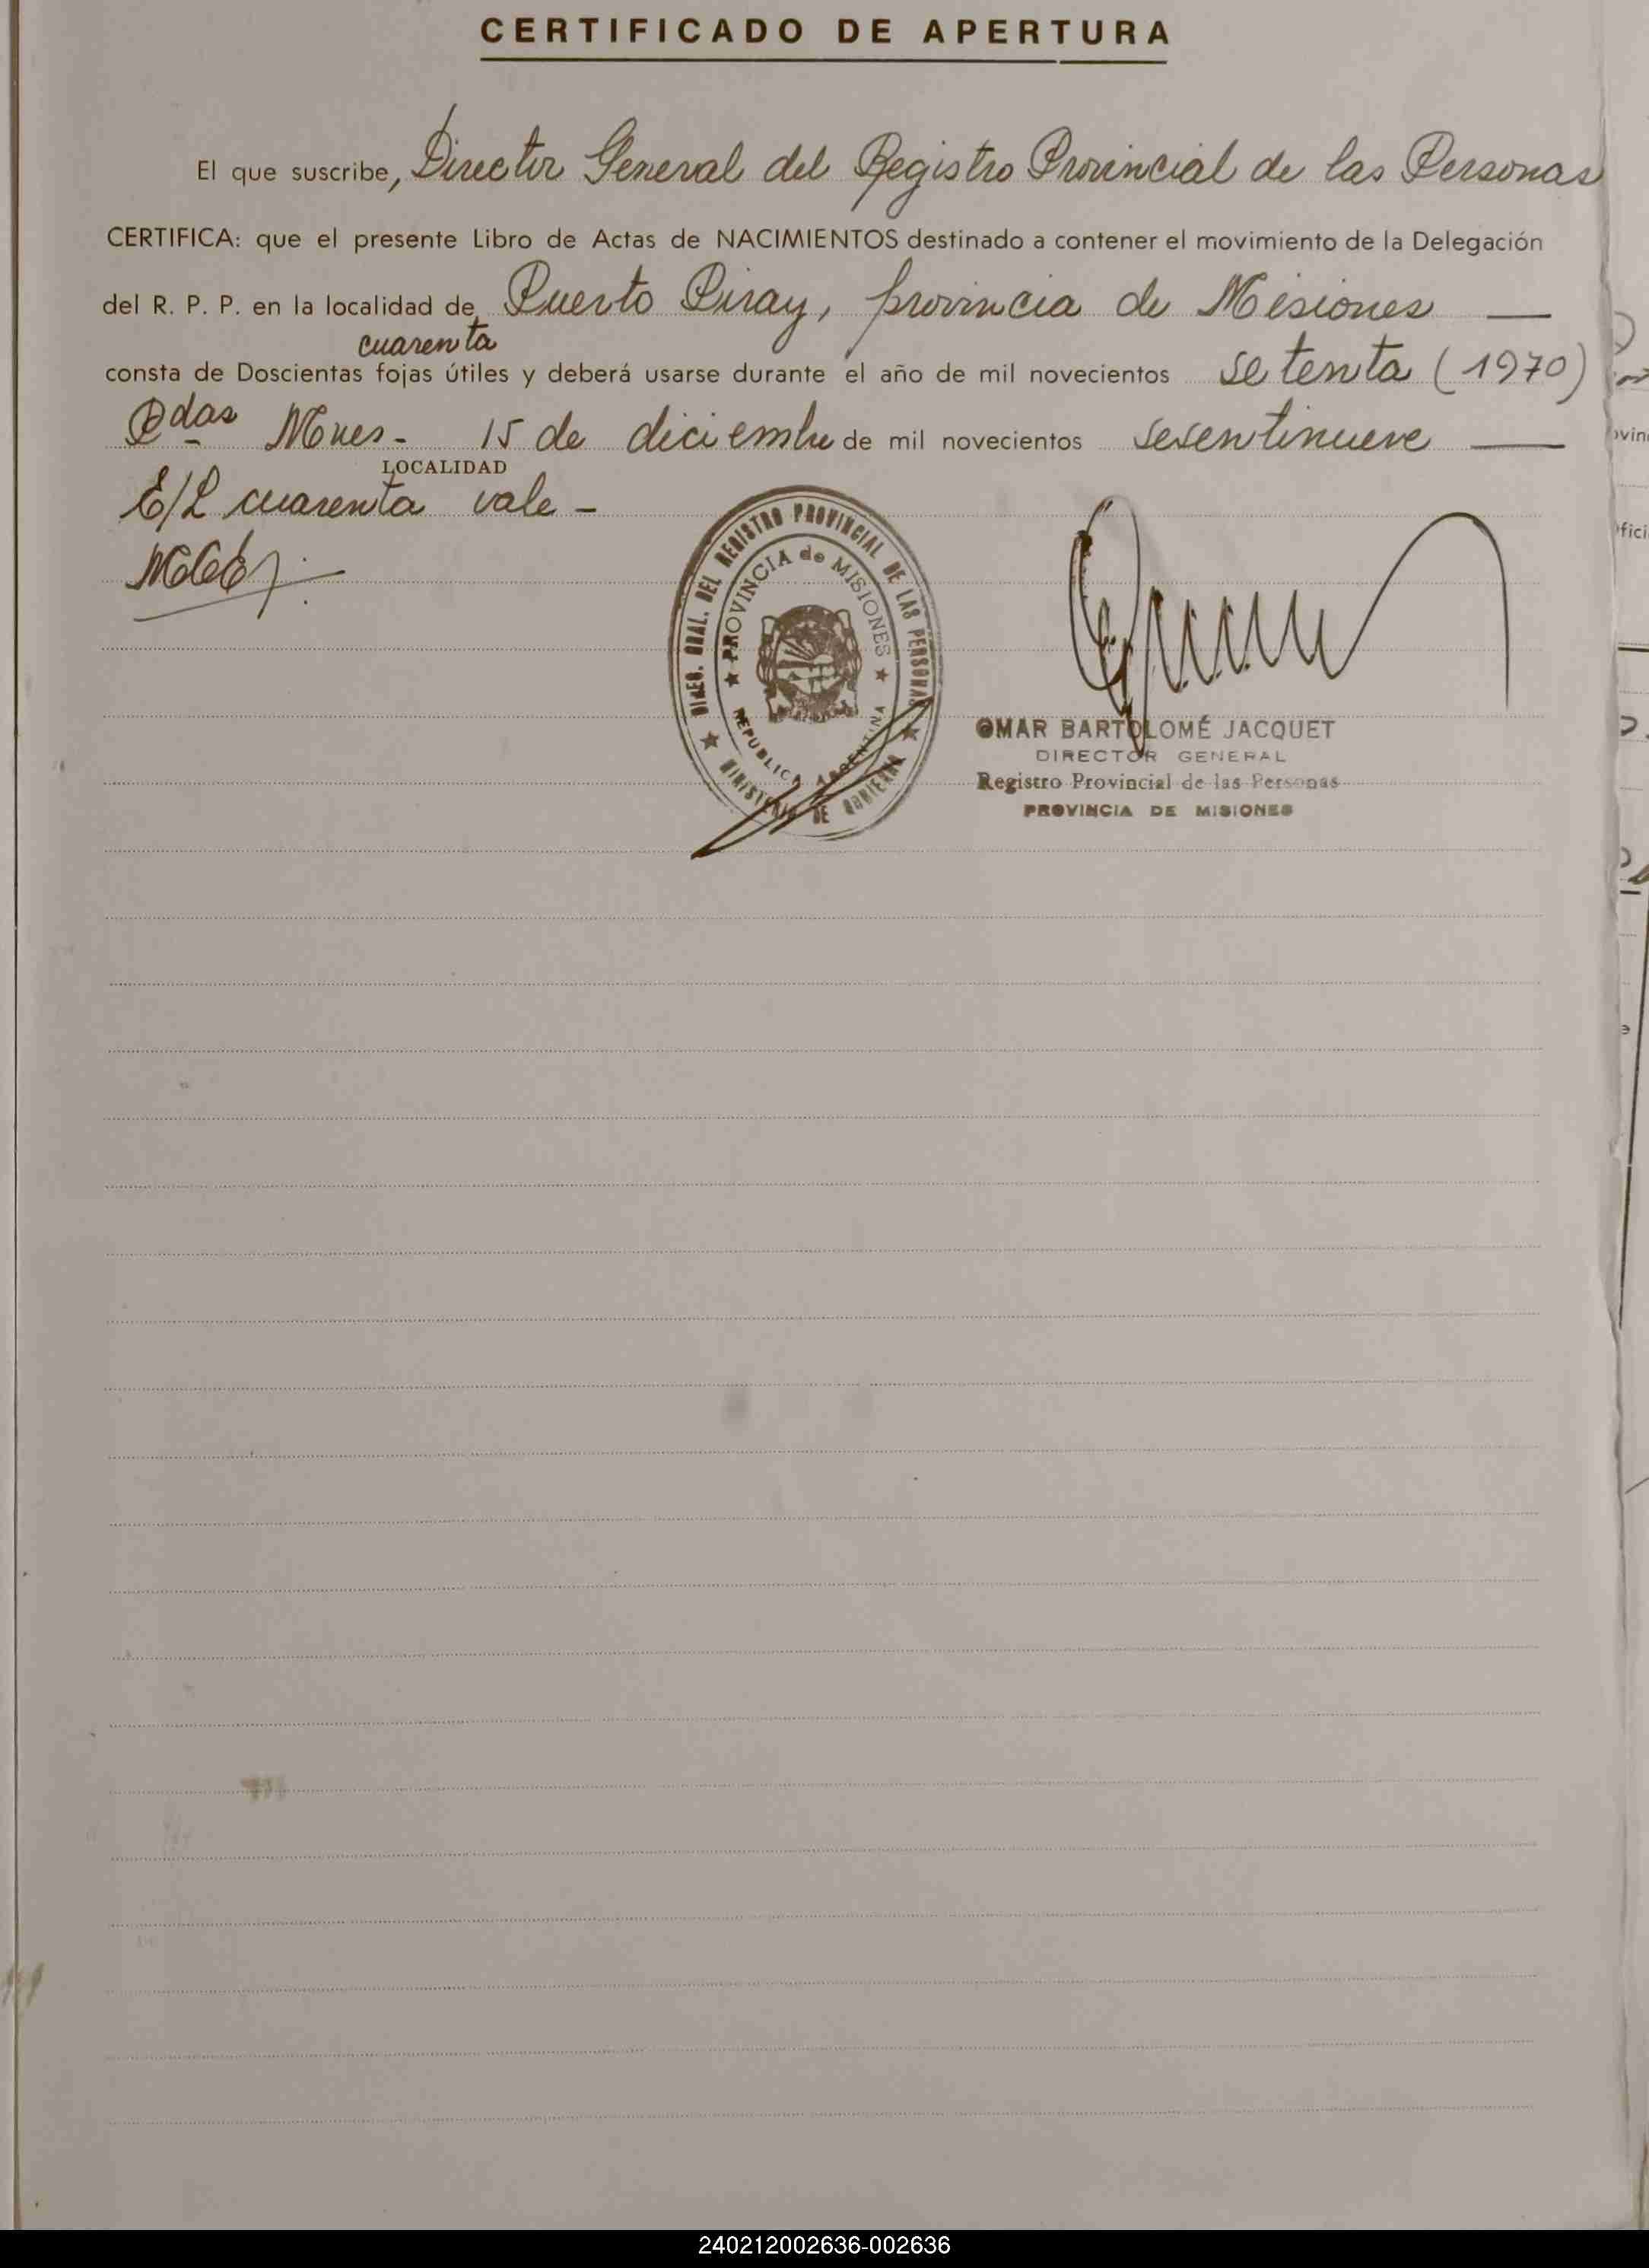 CERTIFICADO DE APERTURA
El que suscribe, Director General del Registro Provincial de las Personas
CERTIFICA: que el presente Libro de Actas de NACIMIENTOS destinado a contener el movimiento de la Delegación
del R. P. P. en la localidad de Puerto Piray, provincia de Misiones —
cuarenta
consta de Doscientas fojas útiles y deberá usarse durante el año de mil novecientos setenta (1970)
Pdas Mnes- 15 de diciembre de mil novecientos sesentinueve —
LOCALIDAD
E/L cuarenta vale -
DIREC. GRAL. DEL REGISTRO PROVINCIAL DE LAS PERSONAS
★ PROVINCIA de MISIONES ★
REPUBLICA ARGENTINA
★ MINISTERIO DE GOBIERNO ★
OMAR BARTOLOMÉ JACQUET
DIRECTOR GENERAL
Registro Provincial de las Personas
PROVINCIA DE MISIONES
240212002636-002636